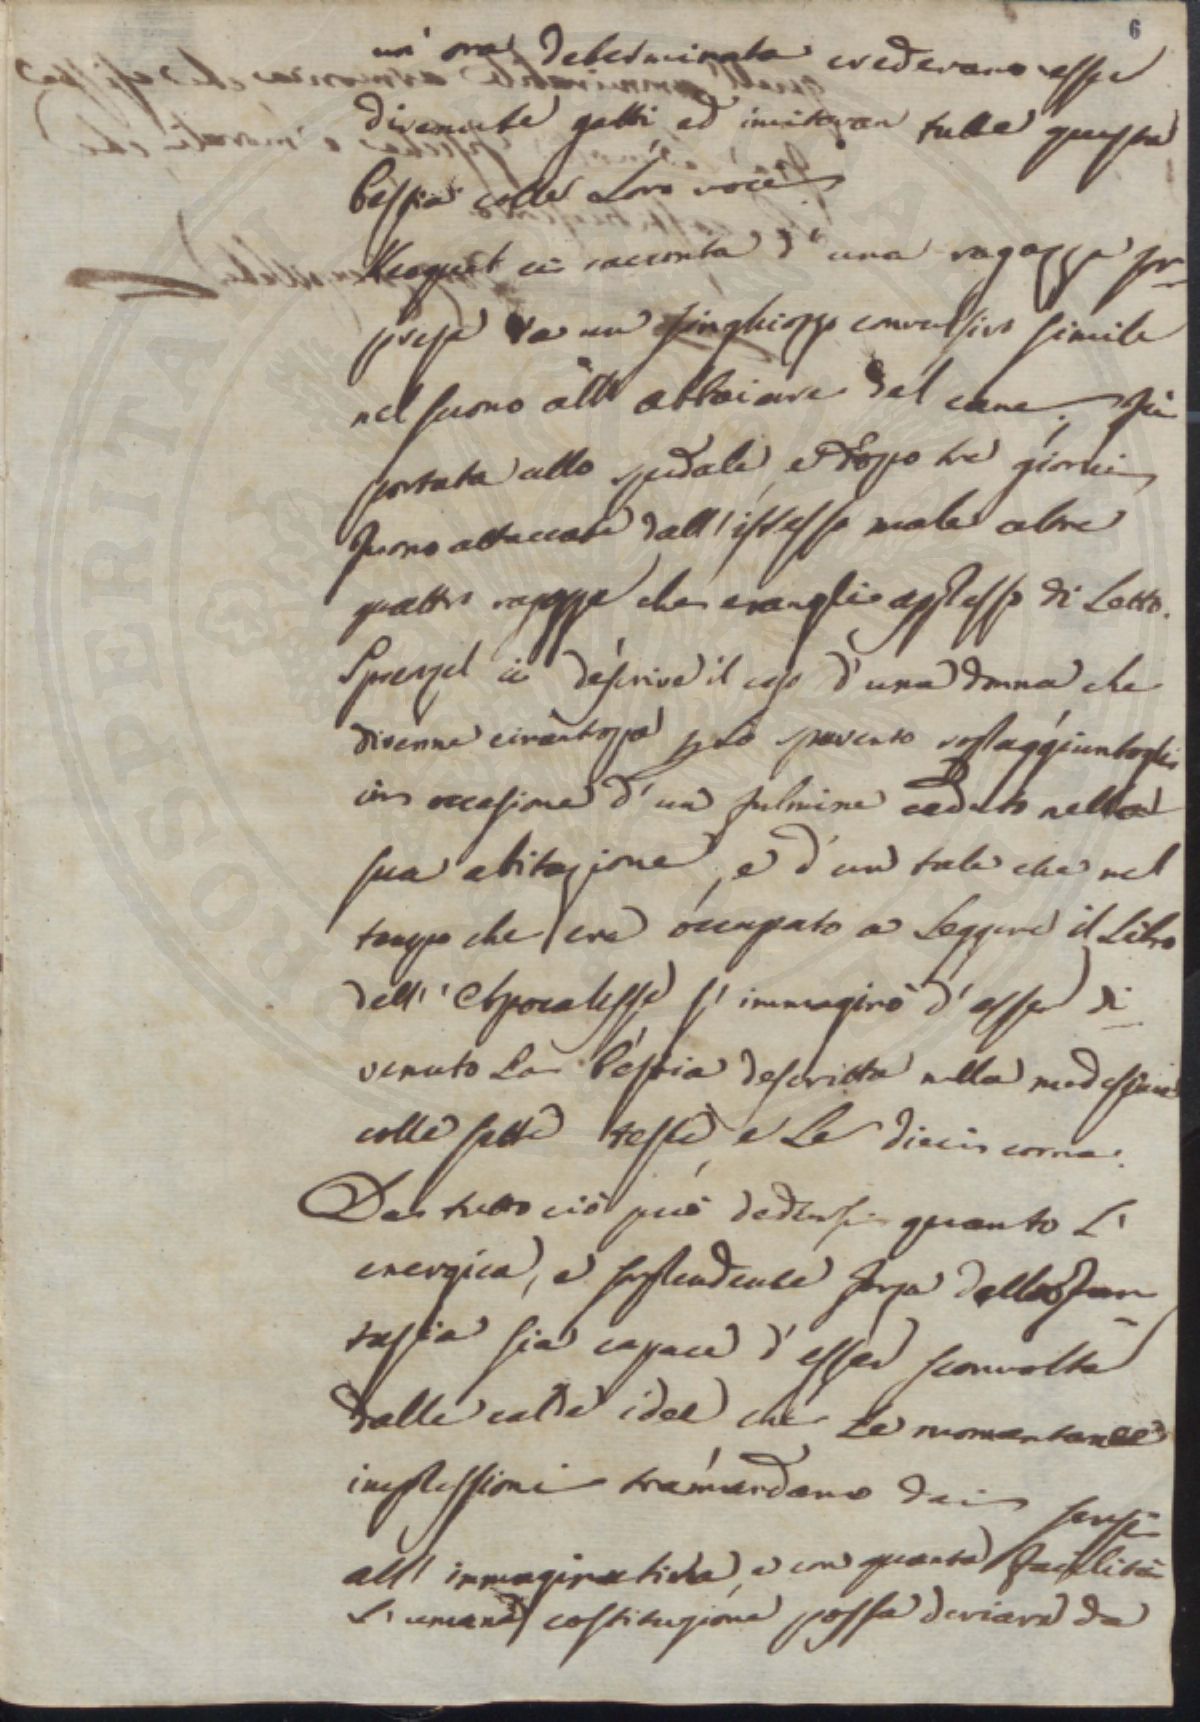 6
un' ora determinata credevano esse
divenute gatti ed imitavan tutte questa
bestia colle Loro voci
ci racconta d' una ragazza sor-
presa da un singhiozzo convulsivo simile
nel suono all' abbaiare del cane. Fù
portata allo spedale, e dopo tre giorni
furono attaccate dall' istesso male altre
quattro ragazze che eranglie appresso di Letto.
Sprengel ci descrive il caso d' una donna che
divenne per lo spavento sopraggiuntogli
in occasione d' un fulmine caduto nella
sua abitazione, e d' un tale che nel
tempo che era occupato a Leggere il Libro
dell' Apocalesse s' immaginò d' esser di-
venuto La bestia descritta nella medesima
colle sette teste, e Le dieci corna.
Da tutto ciò può dedursi quanto L'
energica, e sorprendente forza della Fan-
tasia sia capace d' esser sconvolta
dalle calde idee che Le momentanee
impressioni tramandano dai sensi
all' immaginativa, e con quanta facilità
L' umana costituzione possa deviare da